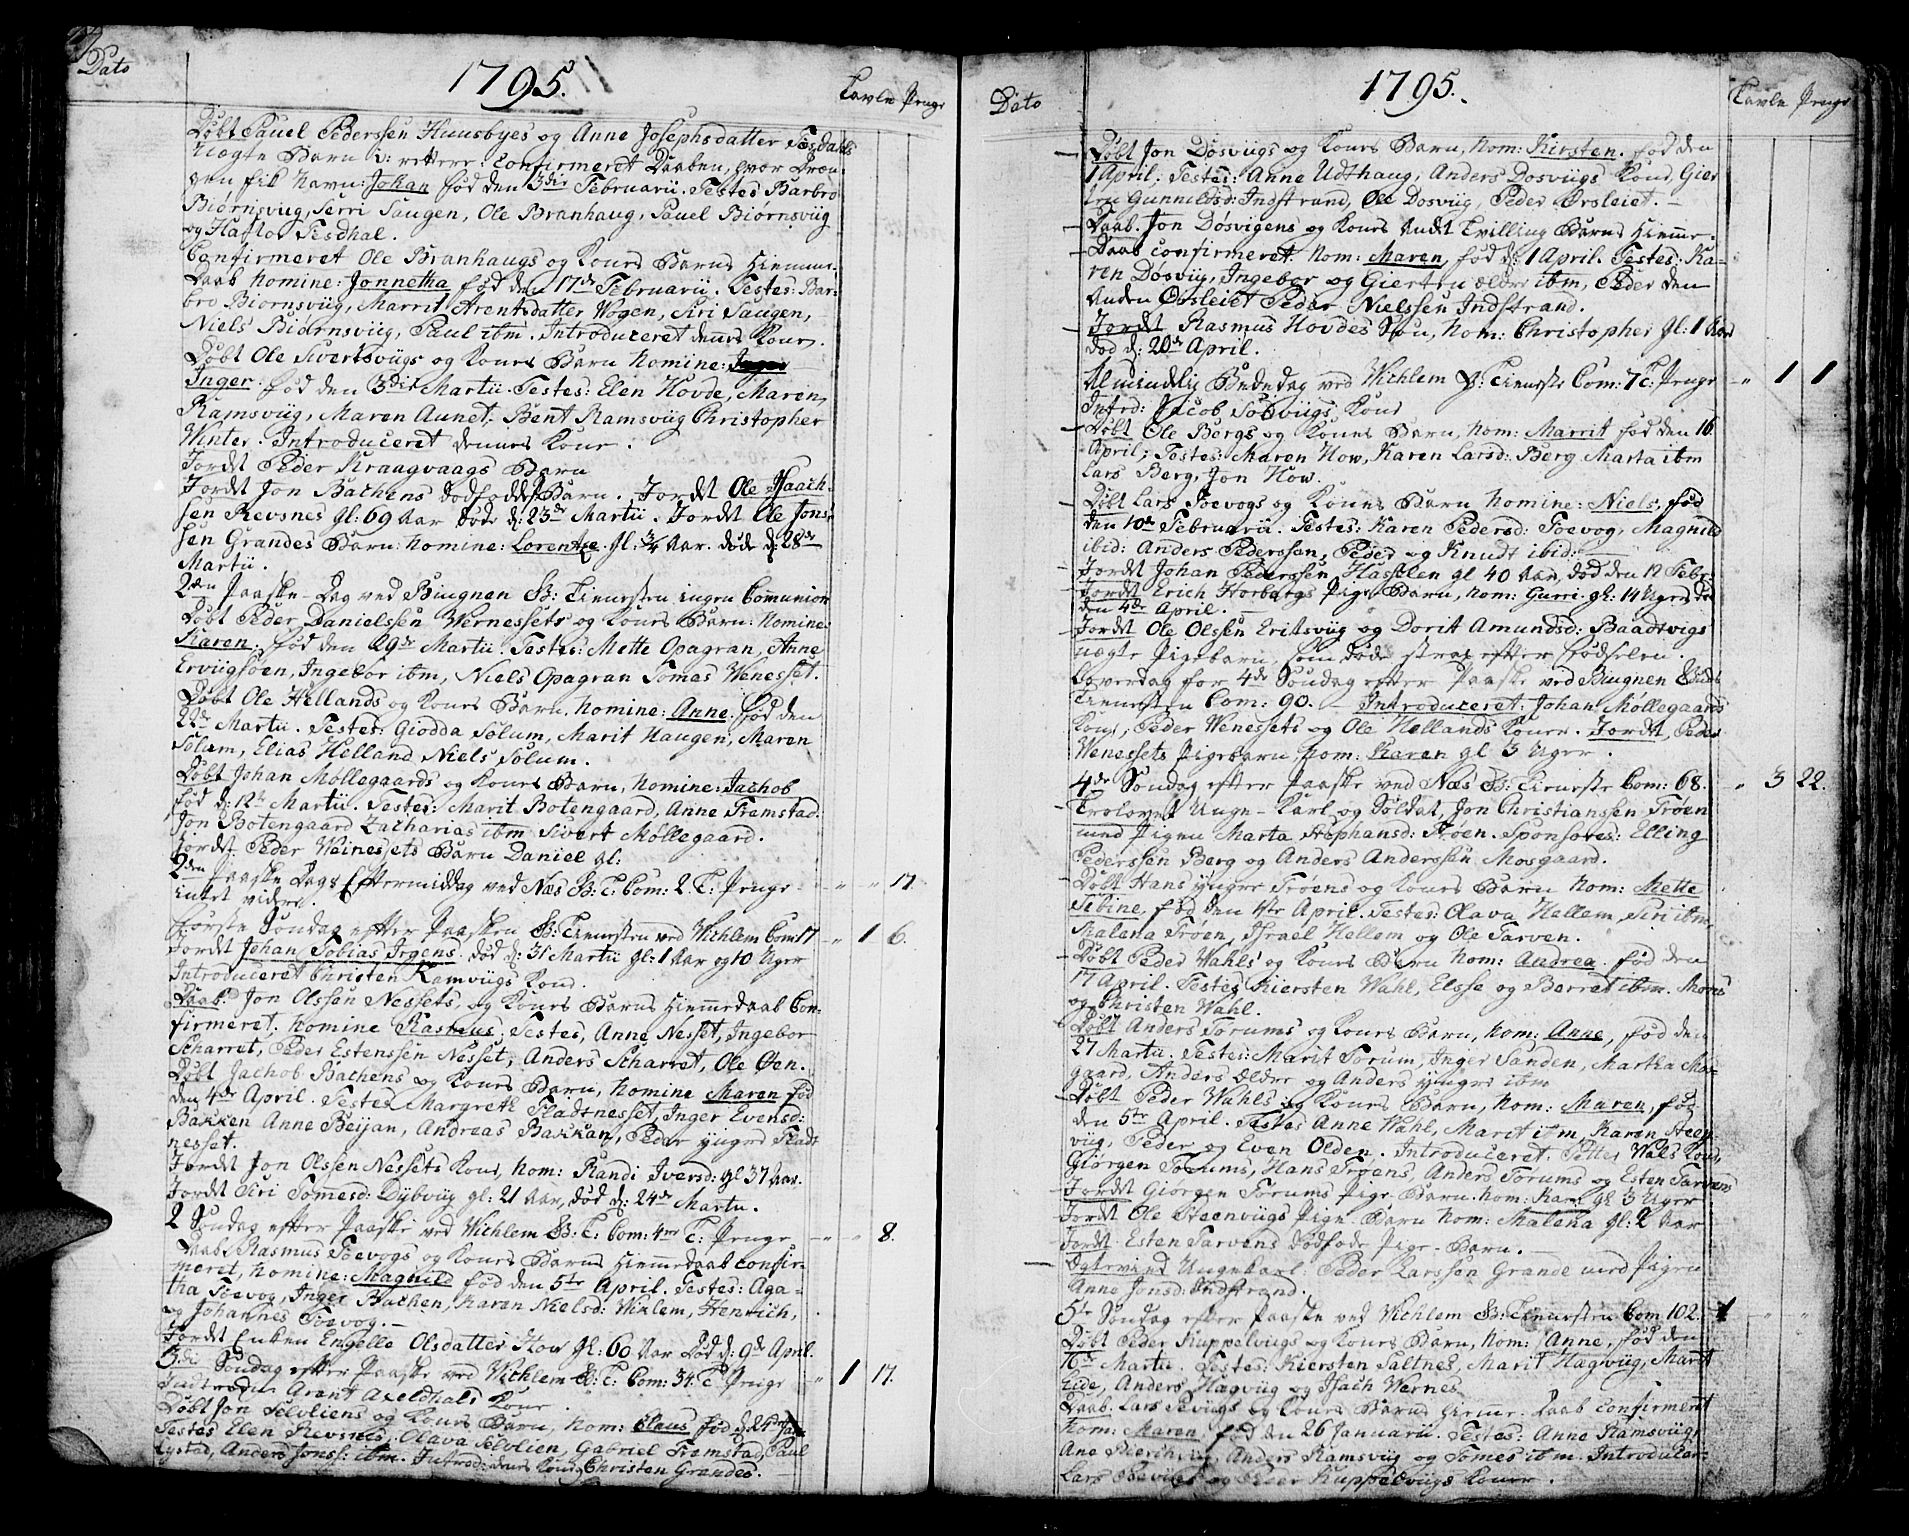 Dato
1795.
Tavle Penge
Døbt Pauel Pederssen Huusbyes og Anne Josephsdatter Tesdahls
Uægte Barn v: rettere: Confirmeret Daaben, hvor Dren-
gen fik Navn: Johan fød den 3die Februarii. Testes Barbro
Biørnsviig, Serri Saugen, Ole Branhaug, Pauel Biørnsviig
og Haftor Tesdhal.
Confirmeret Ole Branhaugs og Kones Barns Hiemme-
Daab nomine: Jonnetha fød den 17de Februarii. Testes: Bar-
bro Biornsviig, Marrit Arentsdatter Wogen, Siri Saugen,
Niels Biørnsviig, Paul ibm. Introduceret dennes Kone.
Døbt Ole Sivertsviigs og Kones Barn nomine:
Inger. fød den 3die Martii. Testes: Elen Hovde, Maren
Ramsviig, Maren Aunet, Bent Ramsviig Christopher
Winter. Introduceret dennes Kone.
Jordet Peder Kraagvaags Barn
Jordet Jon Bachens dødføddt Barn. Jordet Ole Isach-
sen Revsnes gl: 69 Aar døde d: 23de Martii. Jordet Ole Jons-
sen Grandes Barn: nomine: Lorentze. gl: 3/4 Aar. døde d: 28de
Martii.
2den Paaske-Dag ved Bingnen B: Tienesten ingen Communion
Døbt Peder Danielssen Wernessets og Kones Barn: Nomine:
Karen. fød den 29de Martii. Testes: Mette Opagran, Anne
Erviigsøen, Ingebor ibm, Niels Opagran Tomas Wenesset.
Døbt Ole Hellands og Kones Barn. Nomine: Anne. fød den
22de Martii. Testes: Giodda Solum, Marit Haugen, Maren
Solum, Elias Helland Niels Solum.
Døbt Johan Møllegaards og Kones Barn, Nomine: Jachob
fød d: 12te Martii. Testes: Marit Botengaard, Anne Framstad
Jon Botengaard Zacharias ibm Sivert Møllegaard.
Jordet Peder Weinessets Barn Daniel gl:
2den Paaske Dags Eftermiddag ved Næs B: T: Com: 2 T: Penge - " - " 17.
Intet videre.
Første Søndag efter Paasken B: Tienesten ved Wichlem Com 17 - " 1 - 6.
Jordet Johan Tobias Irgens. død d: 31 Martii gl: 1 Aar og 10 Uger
Introduceret Christen Ramviigs Kone.
Daab Jon Olssen Nessets og Kones Barns Hiemmedaab Con-
firmeret. Nomine Rasmus. Testes, Anne Nesset, Ingebor
Scharret, Peder Estenssen Nesset, Anders Scharret, Ole Øen.
Døbt Jachob Bachens og Kones Barn, Nomine Maren fød
den 4de April. Testes Margreth Fladtnesset, Inger Evensd:
Bakken Anne Beijan, Andreas Bakkan, Peder yngre Fladt
nesset.
Jordet Jon Olssen Nessets Kone, nom: Randi Iversd: gl 37 Aar.
Jordet Siri Tomesd: Dybviig gl: 21 Aar, død d: 24de Martii.
2 Søndag efter Paaske ved Wichlem B: T: Com: 4re T: Penge - " - " 8.
Daab Rasmus Foevogs og Kones Barns Hiemmedaab confir-
meret, Nomine: Magnild fød den 5te April. Testes: Aga-
tha Foevog, Inger Bachen, Karen Nielsd: Wiklem, Henrich,
og Johannes Foevog.-
Jordet Enken Engelle Olsdatter How gl: 60 Aar død d: 9de April.
3die Søndag efter Paaske ved Wichlem B: T: Com: 34. T: Penge - " 1 17.
Arent Axeldhals Kone.
Døbt Jon Selvliens og Kones Barn, nom: Claus fød d: 24de
Testes Elen Revsnes, Olava Selvlien, Gabriel Framstad, Paul
Lystad, Anders Jonss: ibm. Introd: denes Kone, Christen Grandes.
Dato
1795.
Tavle Penge
Døbt Jon Døsviigs og Kones Barn, nom: Kirsten. fød den
1 April; Testes: Anne Udthaug, Anders Dosviigs Kone, Gier
tru Gunnildsd: Indstrand, Ole Dosviig, Peder Orsleiet.-
Daab. Jon Døsvigens og Kones Andet Tvilling Barns Hieme-
Daab confirmeret nom: Maren, fød d: 1 April. Testes: Ka-
ren Dosviig, Ingebor og Giertru ældre ibm, Peder den
Anden Ørsleiet Peder Nielssen Indstrand.
Jordet Rasmus Hovdes Søn, nom: Christopher gl: 1 Aar
død d: 20de April.
Almindelig Bededag ved Wichlem B: Tieneste Com: 7 T: Penge - " 1 1
Introd: Jacob Sobviigs Kone
Døbt Ole Bergs og Kones Barn, nom: Marrit fød den 16
April; Testes: Maren How, Karen Larsd: Berg Marta ibm
Lars Berg, Jon How.
Døbt Lars Foevogs og Kones Barn Nomine: Niels, fød
den 10de Februarii. Testes: Karen Pedersd: Foevog, Magnild
ibid: Anders Pederssen, Peder og Knudt ibid:
Jordet Johan Pederssen Hasselen gl 40 Aar, død den 12 Febr:
Jordet Erich Horbergs Pige Barn, nom: Gurri gl: 14 Uger død
den 4de April.
Jordet Ole Olssen Eritsviig og Dorit Amundsd: Baadtvigs
uægte Pigebarn, som døde strax efter fødselen.
Loverdag for 4de Søndag efter Paaske ved Bingnen
Tienesten Com: 90. - Introduceret: Johan Møllegaards
Kone, Peder Wenessets og Ole Hellands Koner. Jordet, Peder
Wenessets Pigebarn, nom: Karen gl 3 Uger
4de Søndag efter Paaske ved Næs B: Tieneste Com: 68. - " 3 22.
Trolovet Unge-Karl og Soldat, Jon Christianssen Trøen
med Pigen Marta Stephansd: Trøen. Sponsores: Elling
Pederssen Berg og Anders Anderssen Mosgaard.
Døbt Hans yngre Trøens og Kones Barn nom: Mette
Sibine, fød den 1ste April. Testes: Olava Hellem, Siri ibm,
Malena Trøen, Israel Hellem og Ole Tarven.
Døbt Peder Wahls og Kones Barn nom: Andrea. fød den
17 April. Testes Kiersten Wahl, Elsse og Berret ibm. Mons
og Christen Wahl.
Døbt Anders Torums og Kones Barn, nom: Anne, fød den
27 Martii. Testes: Marit Torum, Inger Sanden, Martha Mos-
gaard, Anders ældre og Anders yngre ibm
Døbt Peder Wahls og Kones Barn, nom: Maren, fød
den 5te April. Testes Anne Wahl, Marit ibm, Karen Steen
viig, Peder og Even Olden. Introduceret. Petter Wals Kone,
Giørgen Torums, Hans Trøens, Anders Torums og Esten Tarvens
Jordet Giørgen Torums Pige Barn nom: Karen gl 3 Uger
Jordet Ole Steenviigs Pige Barn nom: Malena gl: 2 Aar
Jordet Esten Tarvens Dødfødde Pige-Barn.-
Egteviid Ungekarl Peder Larssen Grande med Pigen
Anne Jonsd: Indstrand.
5te Søndag efter Paaske ved Wichlem B: Tienesten Com 102. 1 " "
Døbt Peder Kuppelviigs og Kones Barn, nom: Anne, fød den
16de Martii. Testes: Kiersten Saltnes, Marit Hagviig, Marit
Eide, Anders Hagviig og Isach Wernes
Daab. Lars Seviigs og Kones Barns Hieme-Daab confirmeret
nom: Maren, fød den 26 Januarii. Testes: Anne Ramsviig,
Ane, Anders Ramsviig og Tomes ibm. Introducer-
Lars Seviigs og Peder Kuppelviigs Koner.